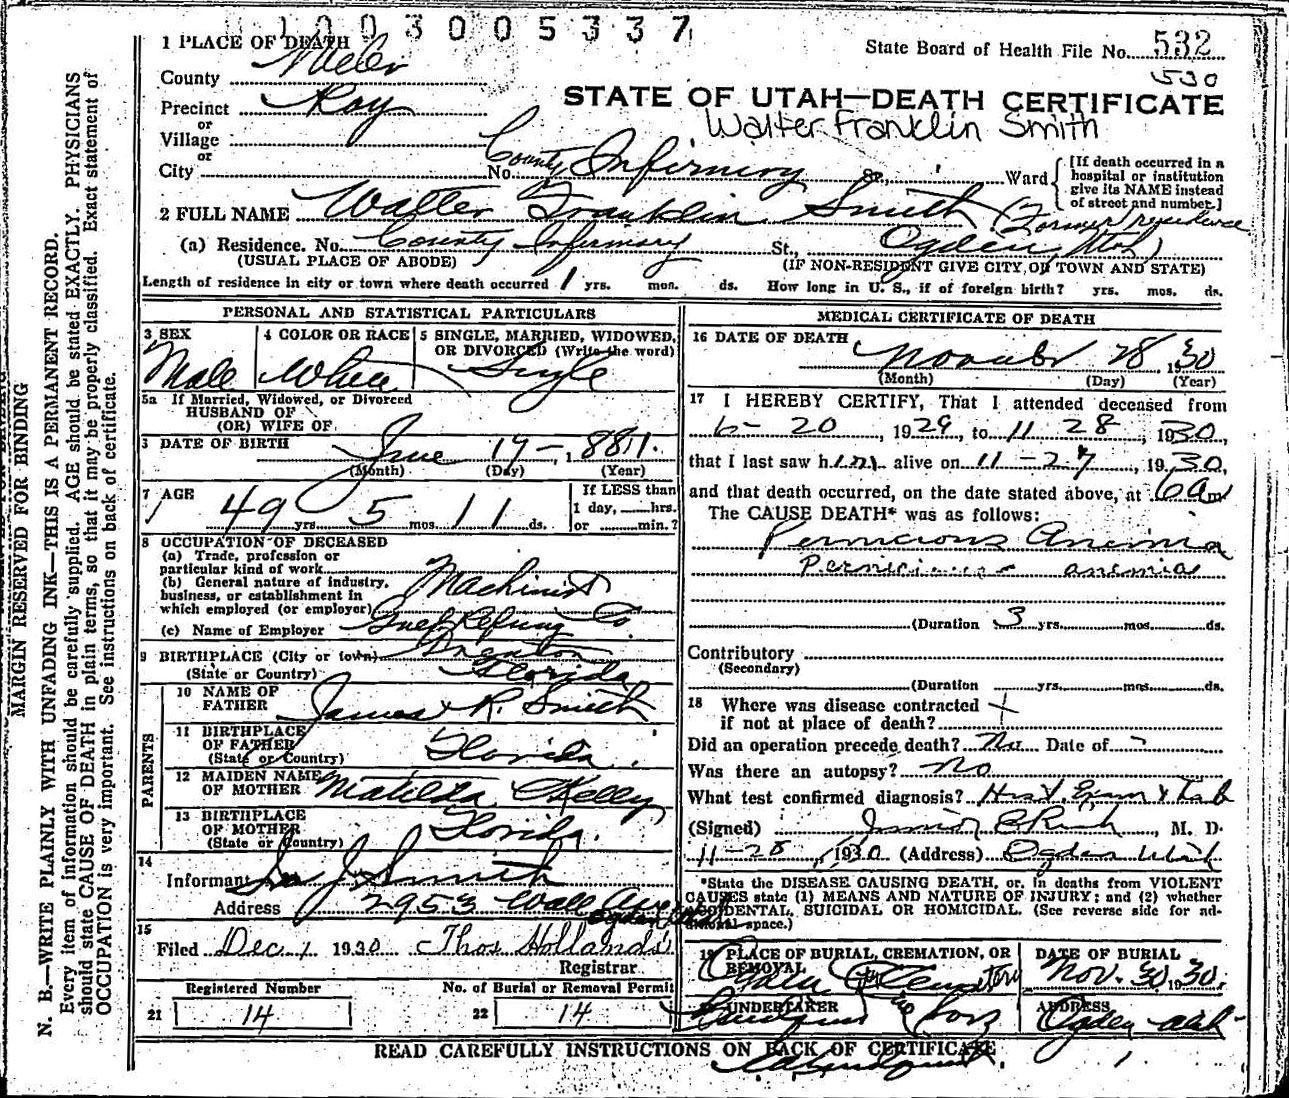 1003005337
1 PLACE OF DEATH
State Board of Health File No. 532
530
County Weber
STATE OF UTAH—DEATH CERTIFICATE
Precinct Roy
Walter Franklin Smith
or
Village
or
City No. County Infirmery St., Ward
[If death occurred in a
hospital or institution
give its NAME instead
of street and number.]
2 FULL NAME Walter Franklin Smith
(Former residence
(a) Residence. No. County Infirmary St., Ogden, Utah)
(USUAL PLACE OF ABODE) (IF NON-RESIDENT GIVE CITY, OR TOWN AND STATE)
Length of residence in city or town where death occurred 1 yrs. mos. ds. How long in U. S., if of foreign birth? yrs. mos. ds.
PERSONAL AND STATISTICAL PARTICULARS
3 SEX
Male
4 COLOR OR RACE
White
5 SINGLE, MARRIED, WIDOWED,
OR DIVORCED (Write the word)
Single
5a If Married, Widowed, or Divorced
HUSBAND OF
(OR) WIFE OF
DATE OF BIRTH June 17 - 1881.
(Month) (Day) (Year)
7 AGE
49 yrs. 5 mos. 11 ds.
If LESS than
1 day, hrs.
or min.?
8 OCCUPATION OF DECEASED
(a) Trade, profession or
particular kind of work
Machinist
(b) General nature of industry,
business, or establishment in
which employed (or employer)
(c) Name of Employer Refining Co
9 BIRTHPLACE (City or town)
(State or Country) Florida
PARENTS
10 NAME OF
FATHER James R. Smith
11 BIRTHPLACE
OF FATHER
(State or Country) Florida.
12 MAIDEN NAME
OF MOTHER Matilda Kelly
13 BIRTHPLACE
OF MOTHER
(State or Country) Florida.
14
Informant J. Smith
Address 2953 Wall Ave
Ogden Utah
15
Filed Dec 1 1930 Thos Hollands
Registrar
Registered Number
21 14
No. of Burial or Removal Permit
22 14
MEDICAL CERTIFICATE OF DEATH
16 DATE OF DEATH
November 28 1930
(Month) (Day) (Year)
17 I HEREBY CERTIFY, That I attended deceased from
6- 20, 1929, to 11 28, 1930,
that I last saw him alive on 11 - 27, 1930,
and that death occurred, on the date stated above, at 6 am
The CAUSE DEATH* was as follows:
Pernicious Anemia
Pernicious anemia
(Duration 3 yrs. mos. ds.
Contributory
(Secondary)
(Duration yrs. mos. ds.
18 Where was disease contracted
if not at place of death?
Did an operation precede death? No Date of -
Was there an autopsy? no
What test confirmed diagnosis? Hist Exam & Lab
(Signed) Junior E Rich, M. D.
11-28, 1930 (Address) Ogden Utah
*State the DISEASE CAUSING DEATH, or, in deaths from VIOLENT
CAUSES state (1) MEANS AND NATURE OF INJURY; and (2) whether
ACCIDENTAL, SUICIDAL OR HOMICIDAL. (See reverse side for ad-
ditional space.)
19 PLACE OF BURIAL, CREMATION, OR
REMOVAL
Ogden City Cemetery
DATE OF BURIAL
Nov. 30 1930.
UNDERTAKER
& Sons
ADDRESS
Ogden Utah
READ CAREFULLY INSTRUCTIONS ON BACK OF CERTIFICATE
MARGIN RESERVED FOR BINDING
N. B.—WRITE PLAINLY WITH UNFADING INK—THIS IS A PERMANENT RECORD.
Every item of information should be carefully supplied. AGE should be stated EXACTLY. PHYSICIANS
should state CAUSE OF DEATH in plain terms, so that it may be properly classified. Exact statement of
OCCUPATION is very important. See instructions on back of certificate.